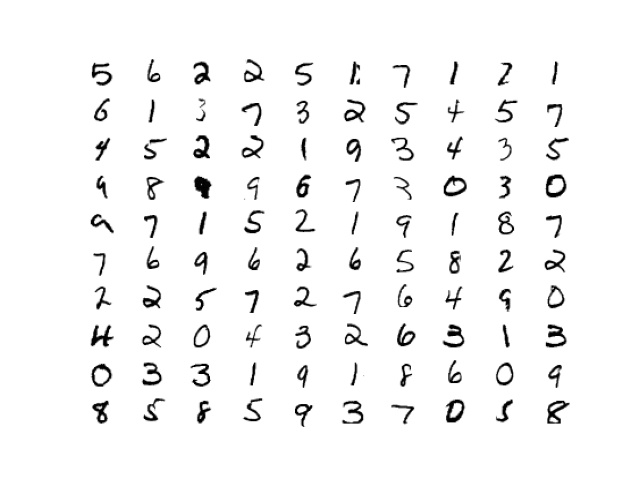 5 6 2 2 5 1 7 1 2 1
6 1 3 7 3 2 5 4 5 7
4 5 2 2 1 9 3 4 3 5
9 8 9 9 6 7 3 0 3 0
9 7 1 5 2 1 9 1 8 7
7 6 9 6 2 6 5 8 2 2
2 2 5 7 2 7 6 4 9 0
4 2 0 4 3 2 6 3 1 3
0 3 3 1 9 1 8 6 0 9
8 5 8 5 9 3 7 0 5 8